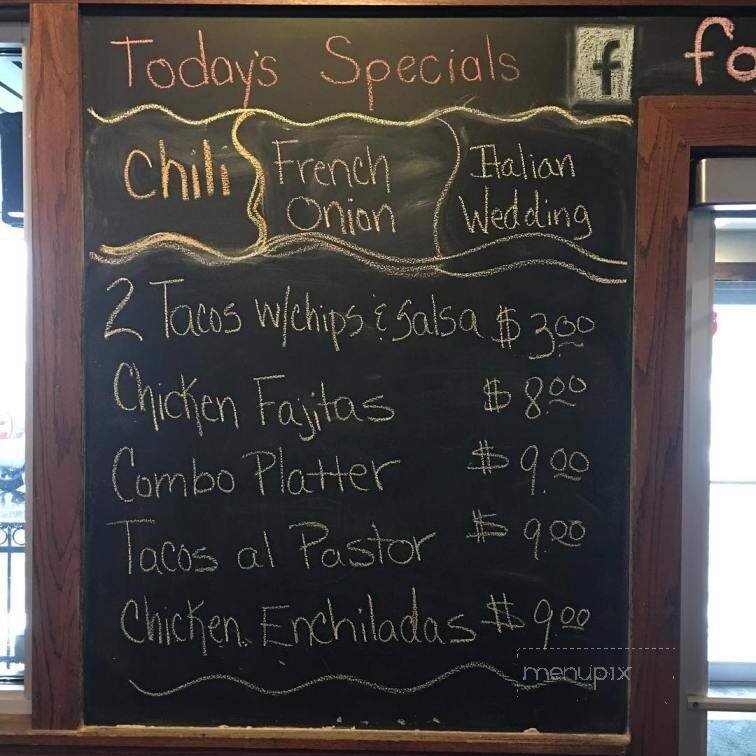 Today's Specials f fo
Chili
French
Onion
Italian
Wedding
2 Tacos w/chips & Salsa $3.00
Chicken Fajitas $8.00
Combo Platter $9.00
Tacos al Pastor $9.00
Chicken Enchiladas $9.00
menupix